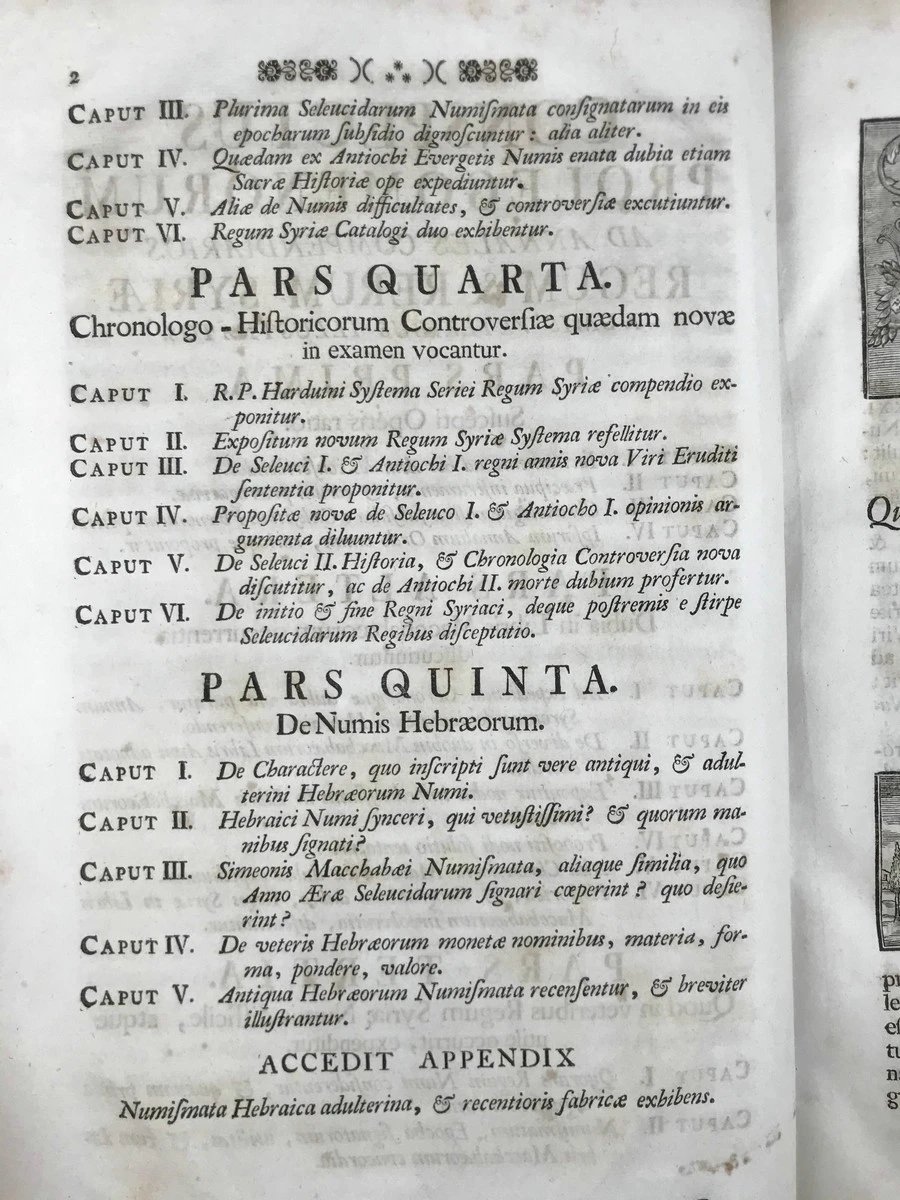 2
CAPUT III. Plurima Seleucidarum Numiſmata conſignatarum in eis
epocharum ſubſidio dignoſcuntur: alia aliter.
CAPUT IV. Quædam ex Antiochi Evergetis Numis enata dubia etiam
Sacræ Hiſtoriæ ope expediuntur.
CAPUT V. Aliæ de Numis difficultates, & controverſiæ excutiuntur.
CAPUT VI. Regum Syriæ Catalogi duo exhibentur.
PARS QUARTA.
Chronologo-Hiſtoricorum Controverſiæ quædam novæ
in examen vocantur.
CAPUT I. R.P. Harduini Syſtema Seriei Regum Syriæ compendio ex-
ponitur.
CAPUT II. Expoſitum novum Regum Syriæ Syſtema refellitur.
CAPUT III. De Seleuci I. & Antiochi I. regni annis nova Viri Eruditi
ſententia proponitur.
CAPUT IV. Propoſitæ novæ de Seleuco I. & Antiocho I. opinionis ar-
gumenta diluuntur.
CAPUT V. De Seleuci II. Hiſtoria, & Chronologia Controverſia nova
diſcutitur, ac de Antiochi II. morte dubium profertur.
CAPUT VI. De initio & fine Regni Syriaci, deque poſtremis e ſtirpe
Seleucidarum Regibus diſceptatio.
PARS QUINTA.
De Numis Hebræorum.
CAPUT I. De Charactere, quo inſcripti ſunt vere antiqui, & adul-
terini Hebræorum Numi.
CAPUT II. Hebraici Numi ſynceri, qui vetuſtiſſimi? & quorum ma-
nibus ſignati?
CAPUT III. Simeonis Macchabæi Numiſmata, aliaque ſimilia, quo
Anno Æræ Seleucidarum ſignari cœperint? quo deſie-
rint?
CAPUT IV. De veteris Hebræorum monetæ nominibus, materia, for-
ma, pondere, valore.
CAPUT V. Antiqua Hebræorum Numiſmata recenſentur, & breviter
illuſtrantur.
ACCEDIT APPENDIX
Numiſmata Hebraica adulterina, & recentioris fabricæ exhibens.